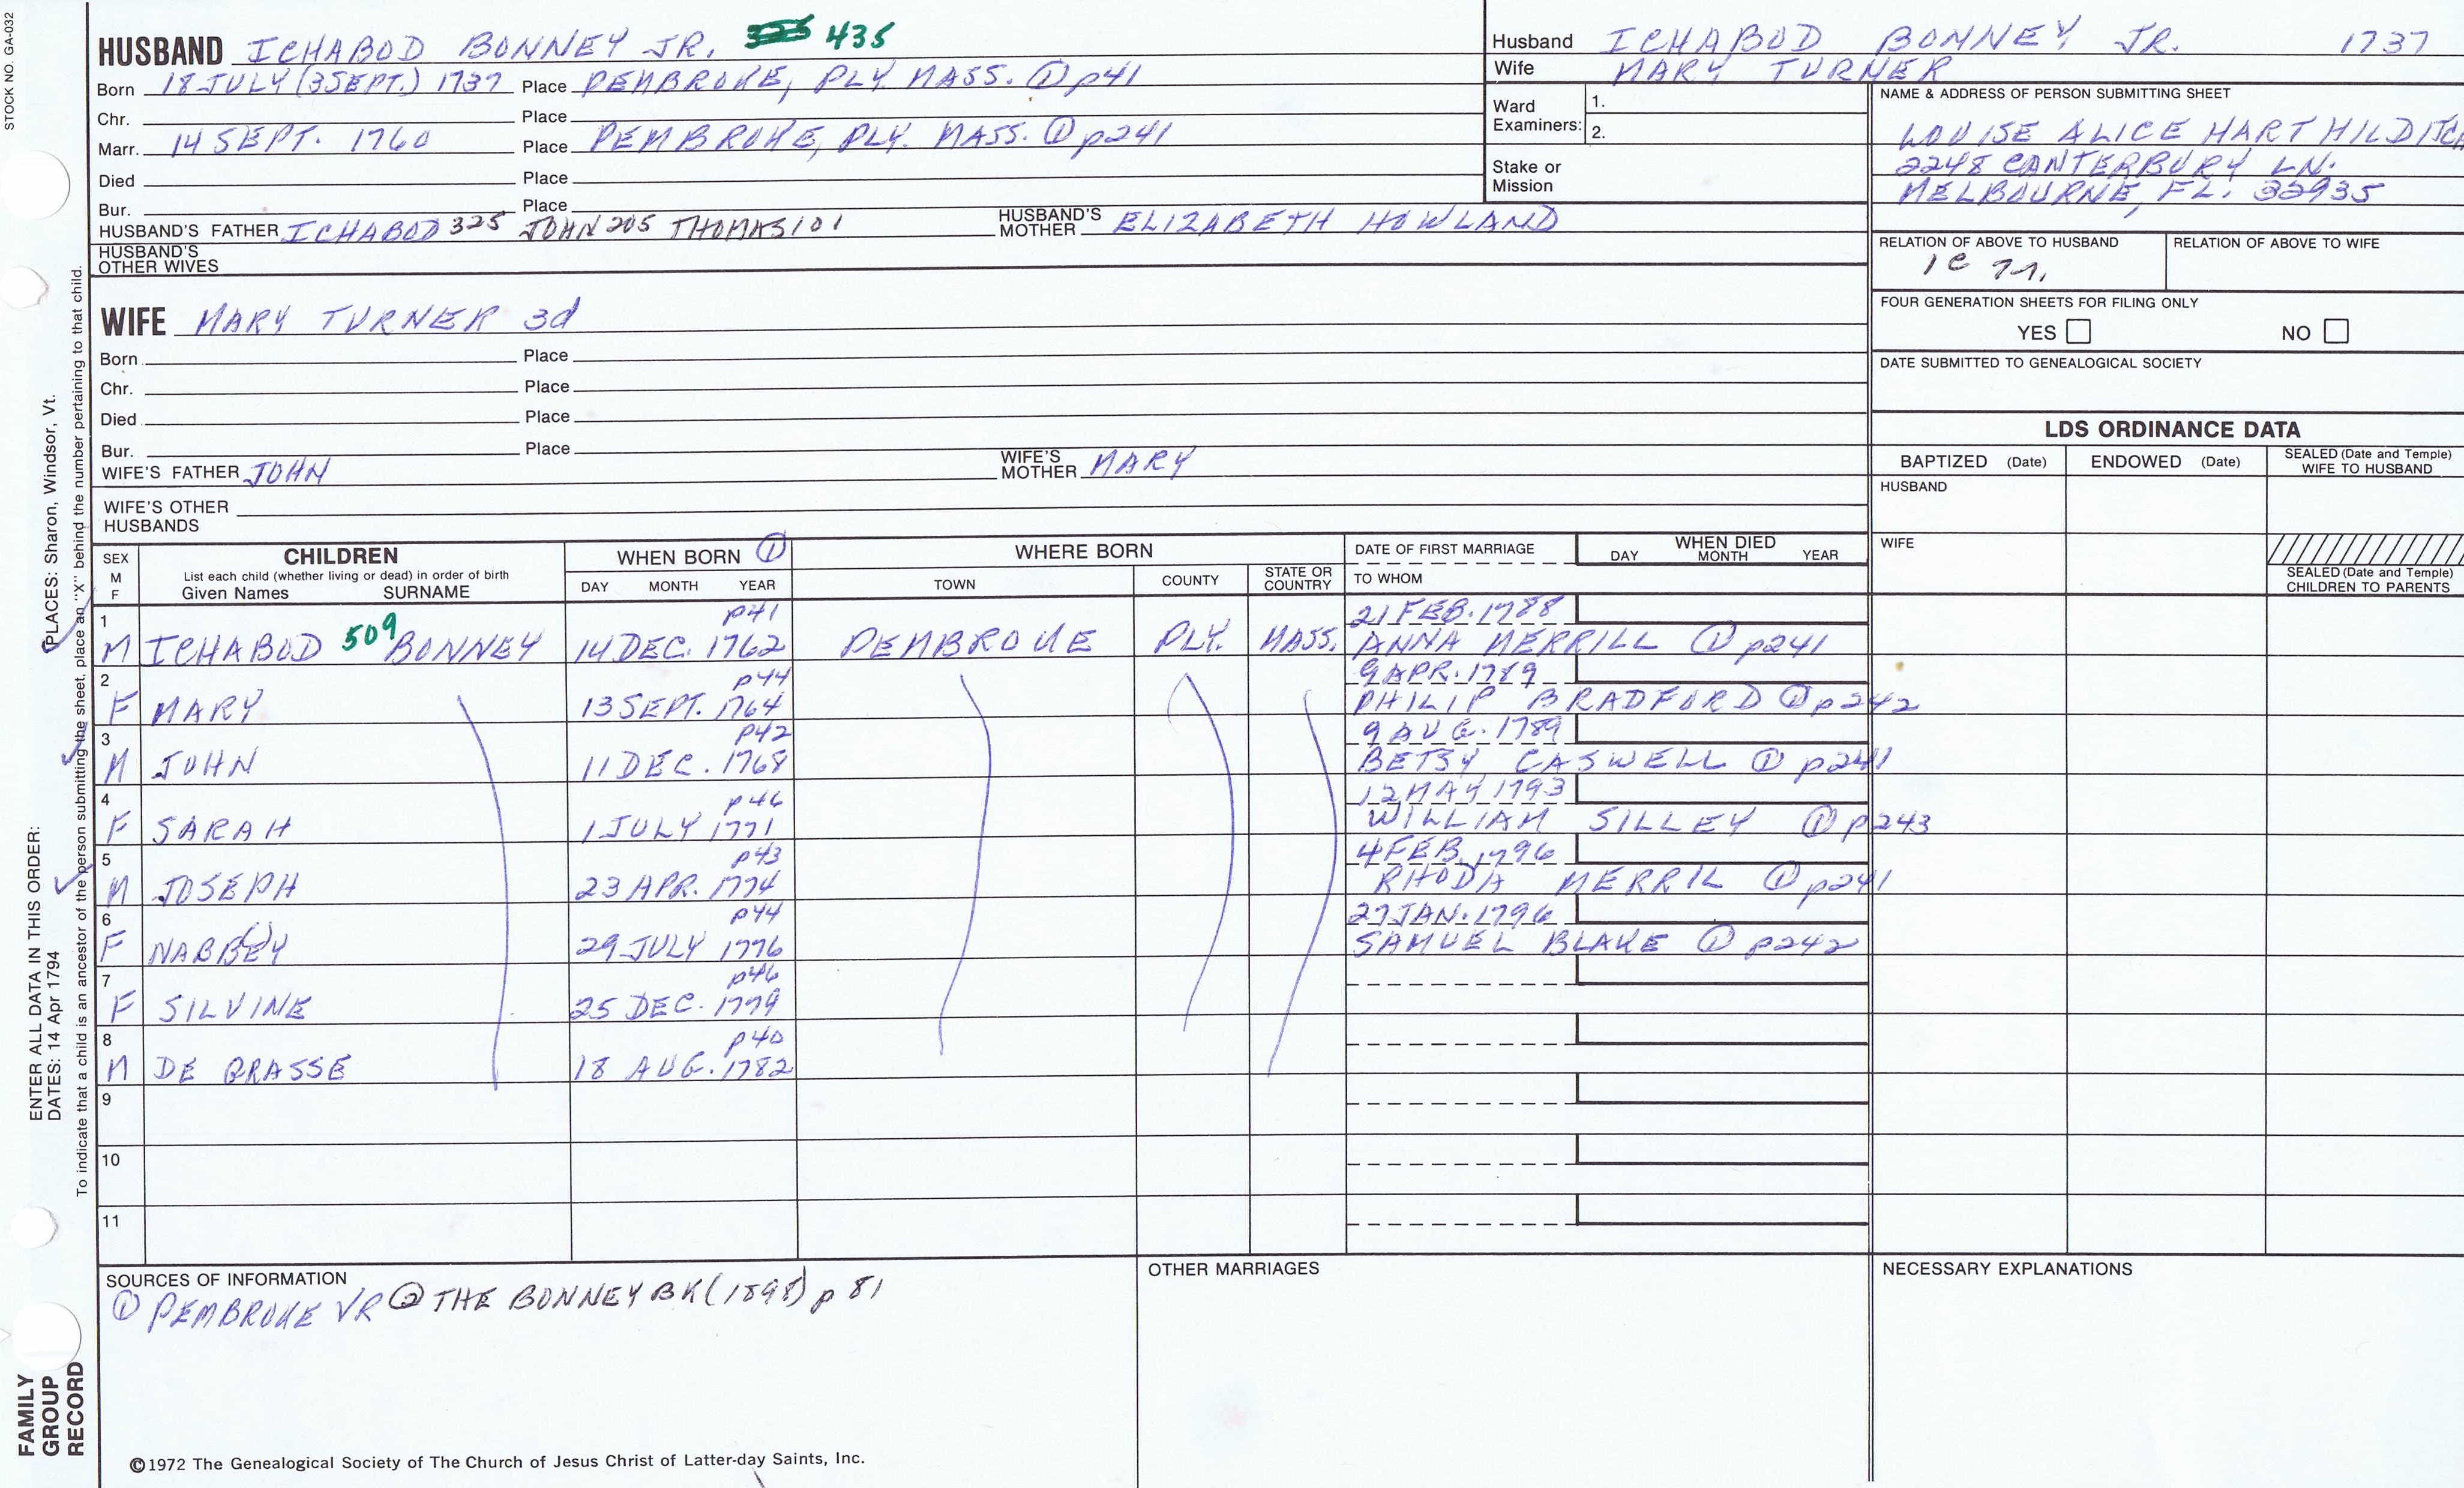 STOCK NO. GA-032
HUSBAND ICHABOD BONNEY JR. 435
Born 18 JULY (3 SEPT.) 1737 Place PEMBROKE, PLY. MASS. ① p41
Chr. Place
Marr. 14 SEPT. 1760 Place PEMBROKE, PLY. MASS. ① p241
Died Place
Bur. Place
HUSBAND'S FATHER ICHABOD 325 JOHN 205 THOMAS 101 HUSBAND'S MOTHER ELIZABETH HOWLAND
HUSBAND'S OTHER WIVES
WIFE MARY TURNER 3d
Born Place
Chr. Place
Died Place
Bur. Place
WIFE'S FATHER JOHN WIFE'S MOTHER MARY
WIFE'S OTHER HUSBANDS
Husband ICHABOD BONNEY JR. 1737
Wife MARY TURNER
Ward Examiners: 1.
2.
Stake or Mission
NAME & ADDRESS OF PERSON SUBMITTING SHEET
LOUISE ALICE HART HILDITCH
2248 CANTERBURY LN.
MELBOURNE, FL. 32935
RELATION OF ABOVE TO HUSBAND RELATION OF ABOVE TO WIFE
FOUR GENERATION SHEETS FOR FILING ONLY
YES NO
DATE SUBMITTED TO GENEALOGICAL SOCIETY
LDS ORDINANCE DATA
BAPTIZED (Date) ENDOWED (Date) SEALED (Date and Temple) WIFE TO HUSBAND
HUSBAND
WIFE
SEALED (Date and Temple) CHILDREN TO PARENTS
SEX M F CHILDREN WHEN BORN ① WHERE BORN DATE OF FIRST MARRIAGE WHEN DIED
List each child (whether living or dead) in order of birth
Given Names SURNAME DAY MONTH YEAR TOWN COUNTY STATE OR COUNTRY TO WHOM DAY MONTH YEAR
1 p41 21 FEB. 1788
M ICHABOD 509 BONNEY 14 DEC. 1762 PEMBROKE PLY. MASS. ANNA MERRILL ① p241
2 p44 9 APR. 1789
F MARY 13 SEPT. 1764 PHILIP BRADFORD ① p242
3 p42 9 AUG. 1789
M JOHN 11 DEC. 1768 BETSY CASWELL ① p241
4 p46 12 MAY 1793
F SARAH 1 JULY 1771 WILLIAM SILLEY ① p243
5 p43 4 FEB. 1796
M JOSEPH 23 APR. 1774 RHODA MERRIL ① p241
6 p44 27 JAN. 1796
F NABB(E)Y 29 JULY 1776 SAMUEL BLAKE ① p242
7 p46
F SILVINE 25 DEC. 1779
8 p40
M DE GRASSE 18 AUG. 1782
9
10
11
SOURCES OF INFORMATION OTHER MARRIAGES NECESSARY EXPLANATIONS
① PEMBROKE VR ② THE BONNEY BK (1898) p 81
©1972 The Genealogical Society of The Church of Jesus Christ of Latter-day Saints, Inc.
ENTER ALL DATA IN THIS ORDER:
DATES: 14 Apr 1794 PLACES: Sharon, Windsor, Vt.
To indicate that a child is an ancestor of the person submitting the sheet, place an "X" behind the number pertaining to that child.
FAMILY
GROUP
RECORD